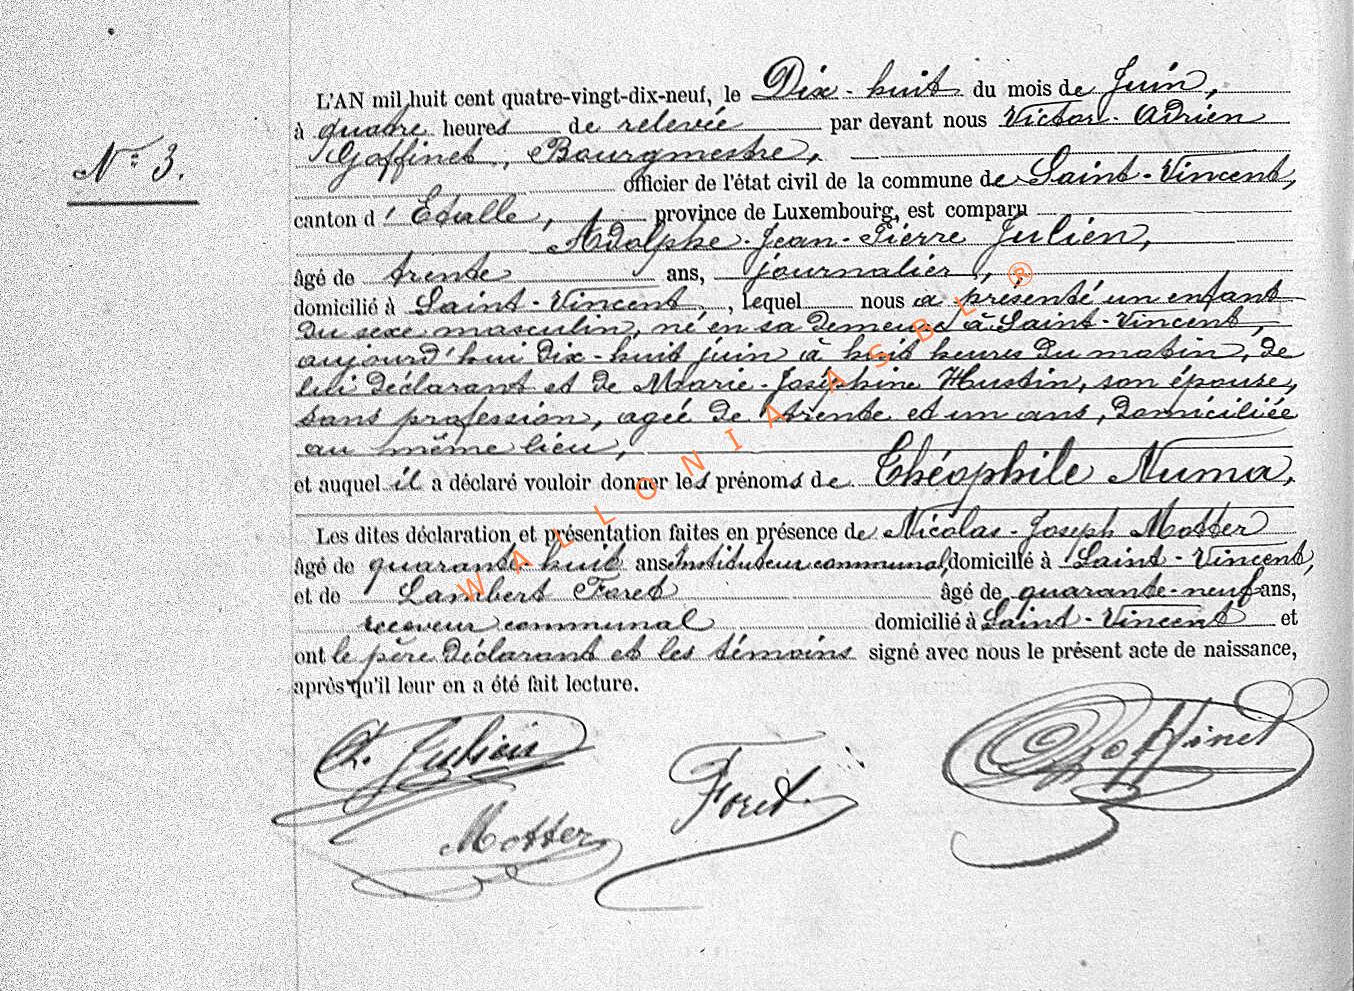 L'AN mil huit cent quatre-vingt-dix-neuf, le Dix-huit du mois de Juin,
à quatre heures de relevée par devant nous Victor-Adrien
N° 3.
Goffinet, Bourgmestre,
officier de l'état civil de la commune de Saint-Vincent,
canton d'Etalle, province de Luxembourg, est comparu
Adolphe-Jean-Pierre Julien,
âgé de trente ans, journalier,
domicilié à Saint-Vincent, lequel nous a présenté un enfant
du sexe masculin, né en sa demeure à Saint-Vincent,
aujourd'hui dix-huit juin à huit heures du matin, de
lui déclarant et de Marie-Joséphine Hustin, son épouse,
sans profession, agée de trente et un ans, domiciliée
au même lieu,
et auquel il a déclaré vouloir donner les prénoms de Théophile Numa.
Les dites déclaration et présentation faites en présence de Nicolas-Joseph Motter
âgé de quarante huit ans Instituteur communal, domicilié à Saint-Vincent,
et de Lambert Foret âgé de quarante-neuf ans,
receveur communal domicilié à Saint-Vincent et
ont le père déclarant et les témoins signé avec nous le présent acte de naissance,
après qu'il leur en a été fait lecture.
A. Julien
Foret
Goffinet
Motter
WALLONIA ASBL ®